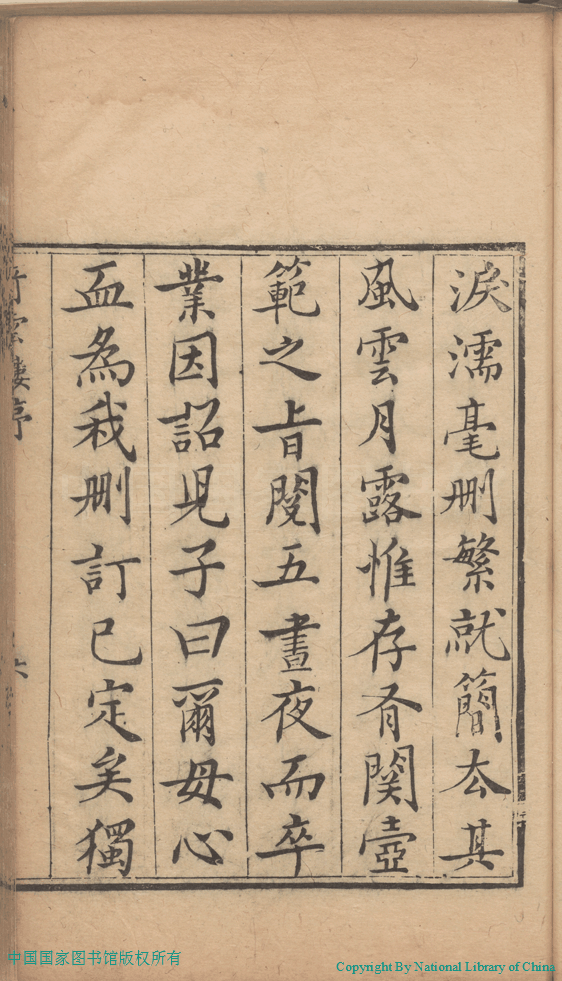 淚濡毫删繁就簡去其
風雲月露惟存有関壼
範之㫖閱五晝夜而卒
業因詔児子曰爾母心
血為我删訂已定矣獨
中国国家图书馆版权所有
Copyright By National Library of China